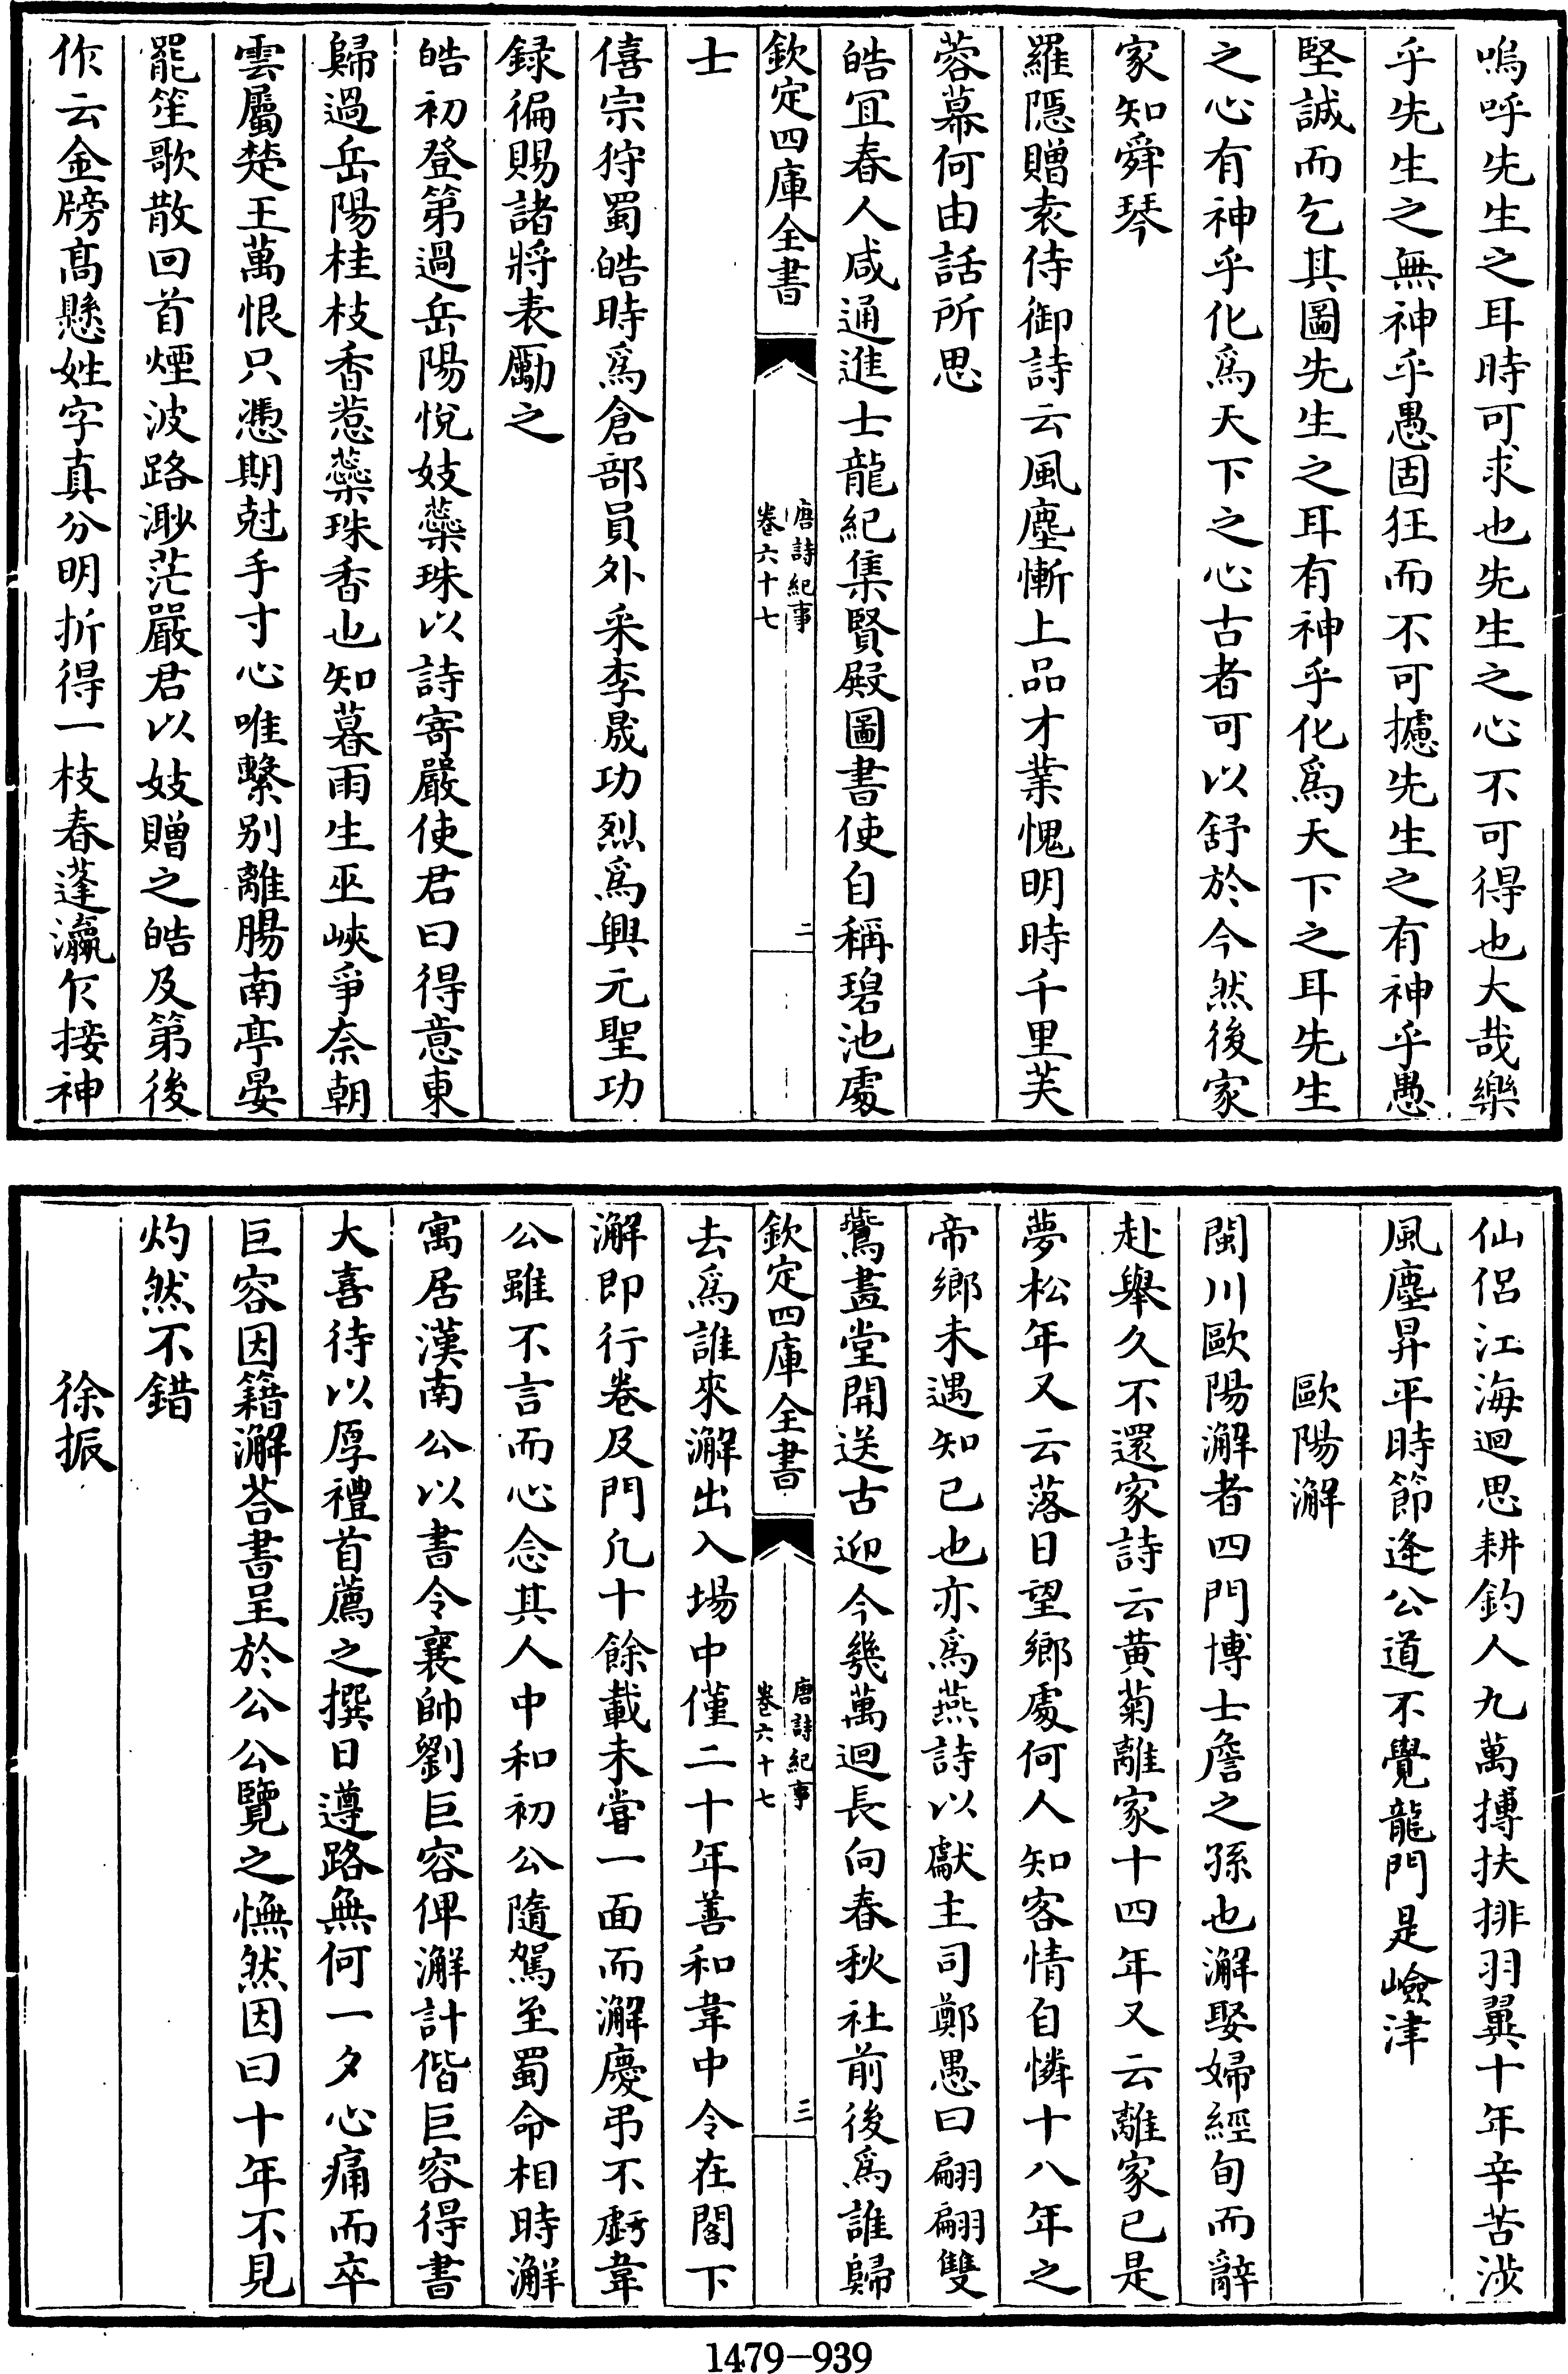 嗚呼先生之耳時可求也先生之心不可得也大哉樂
乎先生之無神乎愚固狂而不可攄先生之有神乎愚
堅誠而乞其圖先生之耳有神乎化爲天下之耳先生
之心有神乎化爲天下之心古者可以舒於今然後家
家知舜琴
羅隱贈袁侍御詩云風塵慚上品才業愧明時千里芙
蓉幕何由話所思
皓宜春人咸通進士龍紀集賢殿圖書使自稱碧池處
欽定四庫全書
唐詩紀事
卷六十七
二
士
僖宗狩蜀皓時爲倉部員外采李晟功烈爲興元聖功
録徧賜諸將表勵之
皓初登第過岳陽悅妓蘂珠以詩寄嚴使君曰得意東
歸過岳陽桂枝香惹蘂珠香也知暮雨生巫峽爭奈朝
雲屬楚王萬恨只憑期尅手寸心唯繫别離腸南亭晏
罷笙歌散回首煙波路渺茫嚴君以妓贈之皓及第後
作云金牓髙懸姓字真分明折得一枝春蓬瀛乍接神
仙侣江海迴思耕釣人九萬摶扶排羽翼十年辛苦涉
風塵昇平時節逢公道不覺龍門是嶮津
歐陽澥
閩川歐陽澥者四門博士詹之孫也澥娶婦經旬而辭
赴舉久不還家詩云黄菊離家十四年又云離家已是
夢松年又云落日望鄉處何人知客情自憐十八年之
帝鄉未遇知己也亦爲燕詩以獻主司鄭愚曰翩翩雙
鷰畫堂開送古迎今幾萬迴長向春秋社前後爲誰歸
欽定四庫全書
唐詩紀事
卷六十七
三
去爲誰來澥出入場中僅二十年善和韋中令在閣下
澥即行卷及門凡十餘載未嘗一面而澥慶弔不虧韋
公雖不言而心念其人中和初公隨駕至蜀命相時澥
寓居漢南公以書令襄帥劉巨容俾澥計偕巨容得書
大喜待以厚禮首薦之撰日遵路無何一夕心痛而卒
巨容因籍澥荅書呈於公公覽之憮然因曰十年不見
灼然不錯
徐振
1479-939